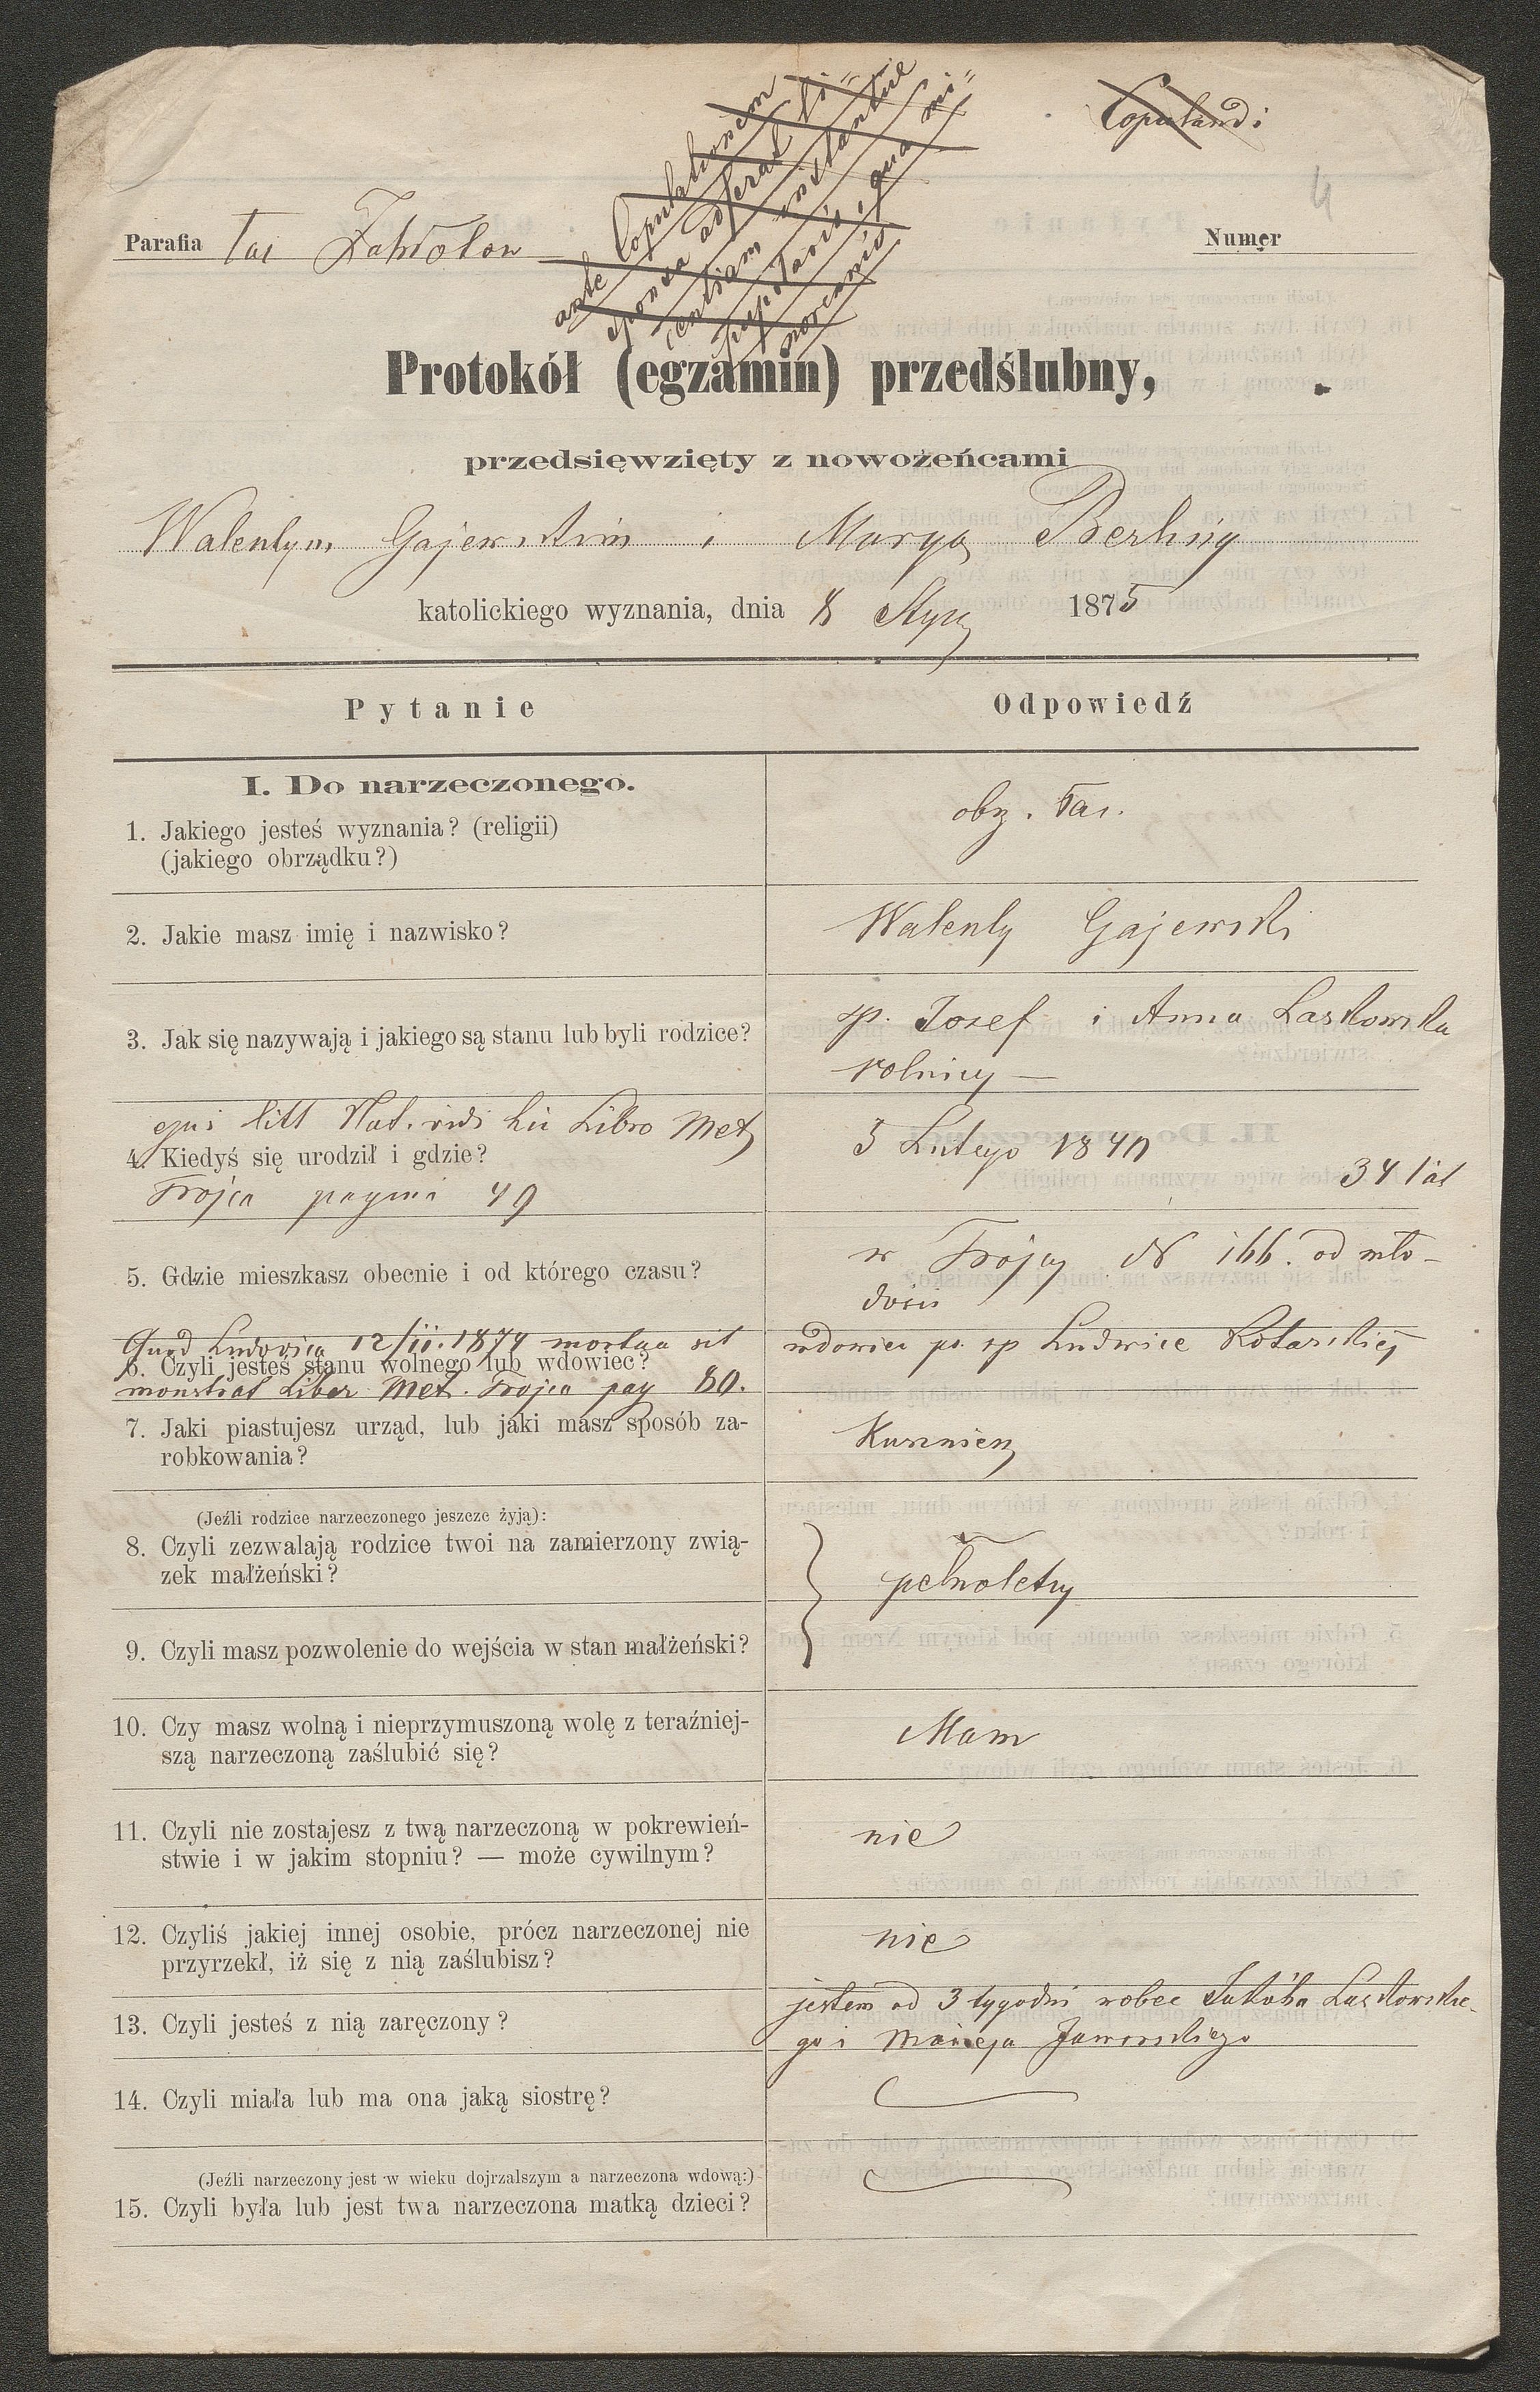 Copulandi
4
ante Copulationem
sponsa adferat li=
centiam militantiae
norennis
Parafia łac Zabłotow
Numer
Protokół (egzamin) przedślubny,
przedsięwzięty z nowożeńcami
Walentym Gajewskim i Maryą Berling
katolickiego wyznania, dnia 8 Stycz 1875
Pytanie
Odpowiedź
I. Do narzeczonego.
1. Jakiego jesteś wyznania? (religii)
(jakiego obrządku?)
obrz. łac.
2. Jakie masz imię i nazwisko?
Walenty Gajewski
3. Jak się nazywają i jakiego są stanu lub byli rodzice?
sp. Josef i Anna Laskowska
rolnicy —
ejus litt Nat. vidi hic Libro Met
4. Kiedyś się urodził i gdzie?
Trojca pagina 49
5 Lutego 1840
34 lat
5. Gdzie mieszkasz obecnie i od którego czasu?
w Trójcy N 166. od mło-
dości
Quod Ludovica 12/11.1874 mortua sit
6. Czyli jesteś stanu wolnego lub wdowiec?
monstrat Liber Met. Trojca pag 80.
wdowiec po sp Ludwice Kotarskiej
7. Jaki piastujesz urząd, lub jaki masz sposób za-
robkowania?
Kusznierz
(Jeźli rodzice narzeczonego jeszcze żyją):
8. Czyli zezwalają rodzice twoi na zamierzony zwią-
zek małżeński?
pełnoletny
9. Czyli masz pozwolenie do wejścia w stan małżeński?
10. Czy masz wolną i nieprzymuszoną wolę z teraźniej-
szą narzeczoną zaślubić się?
Mam
11. Czyli nie zostajesz z twą narzeczoną w pokrewień-
stwie i w jakim stopniu? — może cywilnym?
nie
12. Czyliś jakiej innej osobie, prócz narzeczonej nie
przyrzekł, iż się z nią zaślubisz?
nie
13. Czyli jesteś z nią zaręczony?
jestem od 3 tygodni wobec Jakóba Laskowskie-
go i Macieja Jaworskiego
14. Czyli miała lub ma ona jaką siostrę?
(Jeźli narzeczony jest w wieku dojrzalszym a narzeczona wdową:)
15. Czyli była lub jest twa narzeczona matką dzieci?